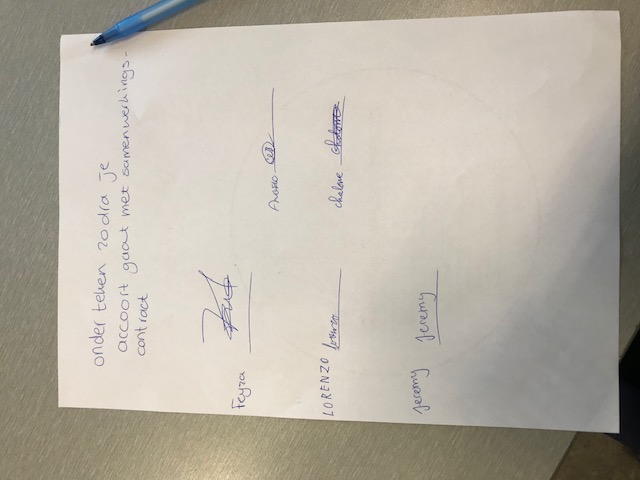 onder teken zodra je
accoort gaat met samenwerkings-
contract
Feyza
Angelo
LORENZO lorenzo
chalone chalone
Jeremy Jeremy